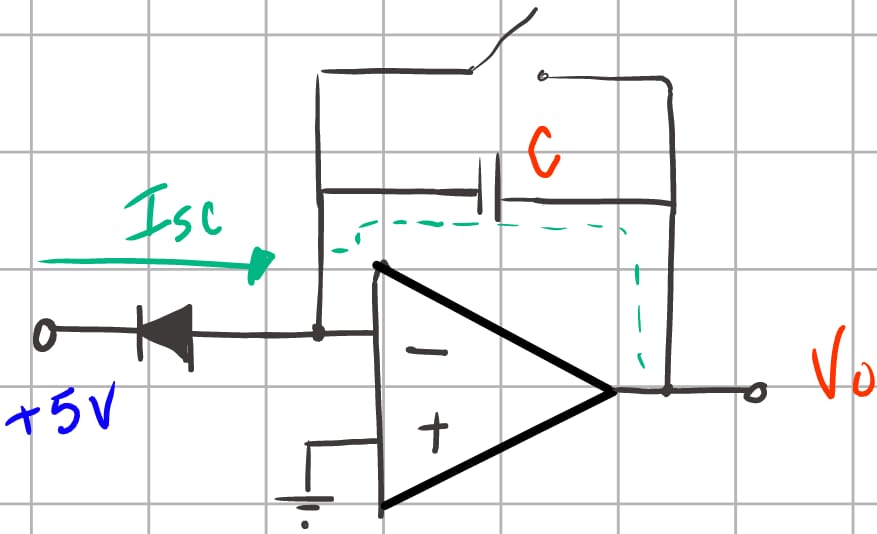 C
Isc
−
+5V
+
Vo